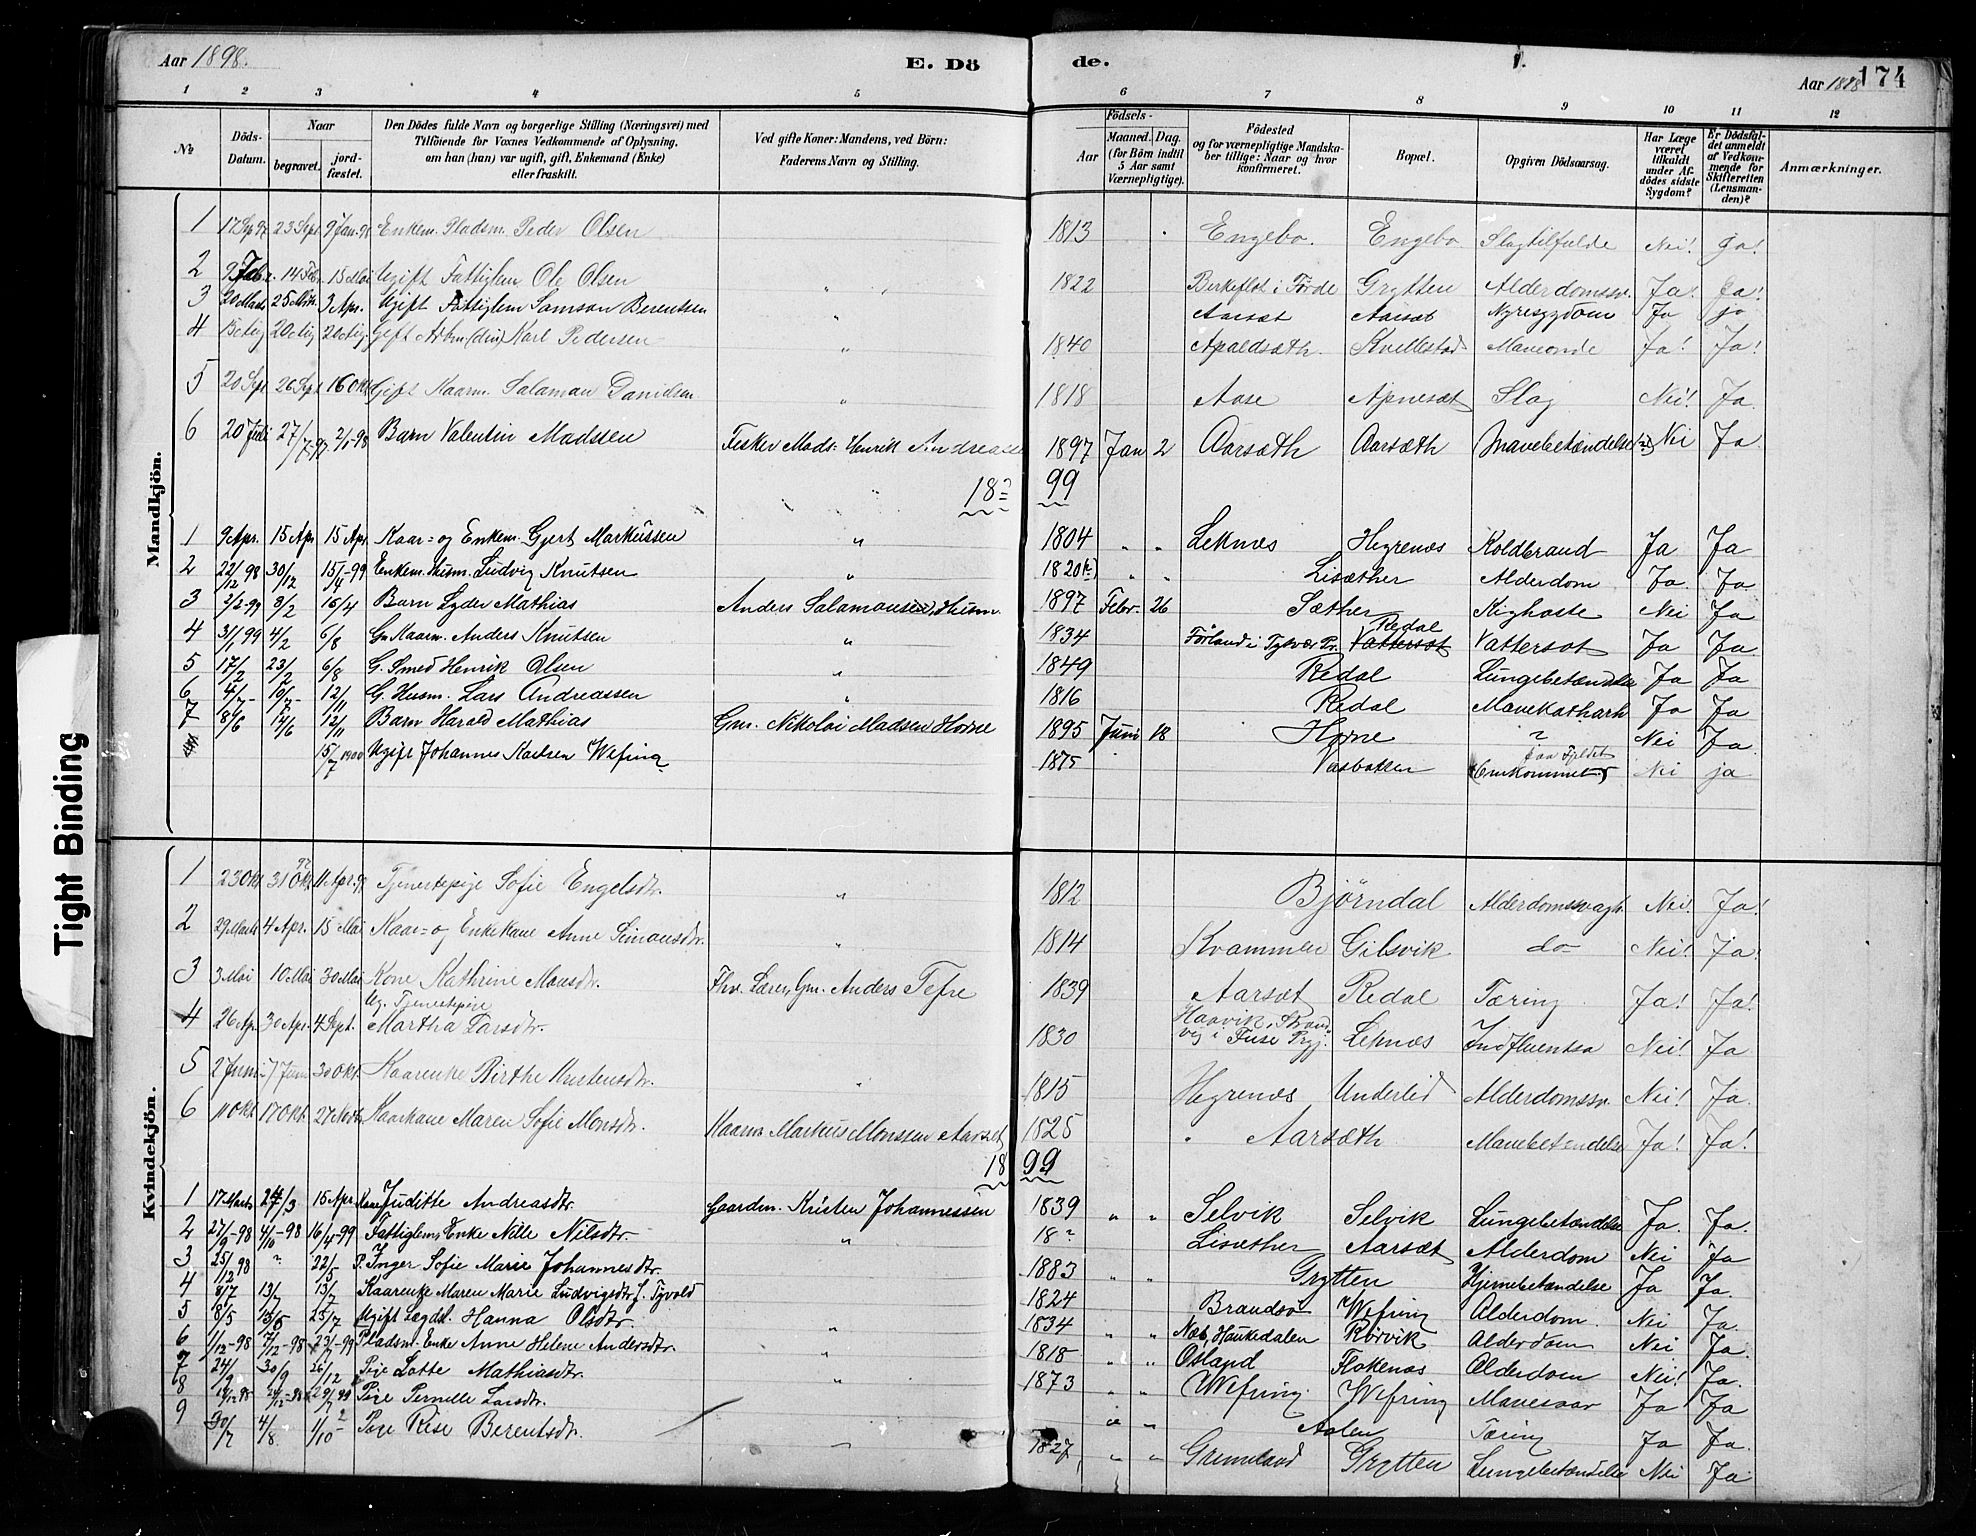 Aar 1898.
E. Dö
de.
Aar 1898
174
1 2 3 4 5 6 7 8 9 10 11 12
№
Döds-Datum.
Naar
begravet.
jord-fæstet.
Den Dödes fulde Navn og borgerlige Stilling (Næringsvei) med
Tilföiende for Voxnes Vedkommende af Oplysning,
om han (han) var ugift, gift, Enkemand (Enke)
eller fraskilt.
Ved gifte Koner: Mandens, ved Börn:
Faderens Navn og Stilling.
Födsels-
Aar
Maaned. Dag.
(for Börn indtil
5 Aar samt
Værnepligtige).
Födested
og for værnepligtige Mandska-
ber tillige: Naar og hvor
konfirmeret.
Bopæl.
Opgiven Dödsaarsag.
Har Læge
været
tilkaldt
under Af-
dödes sidste
Sygdom?
Er Dödsfal-
det anmeldt
af Vedkom-
mende for
Skifteretten
(Lensman-
den)?
Anmærkninger.
Mandkjön.
1 17 Sep 97 23 Sept 9 Jan. 98 Enkem. Pladsm. Peder Olsen 1813 Engebo. Engebo Slagtilfælde Nei! Ja!
2 9 Feb. 14 Feb. 15 Mai Ugift Fattiglem Ole Olsen " 1822 Birkeflot i Förde Gryttene Alderdomssv. Ja! Ja!
3 20 Marts 25 Mar. 3 Apr. Ugift Fattiglem Samson Berentsen " Aarsæt Aarsæt Nyresygdom Ja ja
4 15 Aug 20 Aug 20 Aug. Gift Arbm. Karl Pedersen " 1840 Apaldsæth. Kvellestad Maveonde Ja! Ja!
5 20 Sept 26 Sept 16 Okt Gift Kaarm. Salamon Danidsen " 1818 Aase Apnesæt Slag Nei! Ja.
6 20 Juli 27/7-97 2/1-98 Barn Valentin Madssen Fisker Mads Henrik Andreasse 1897 Jan 2 Aarsæth Aarsæth Mavebetændelse Nei Ja
18 99
1 9 Apr. 15 Apr 15 Apr Kaar- og Enkem. Gjert Markussen " 1804 " " Leknæs Hegrenæs Koldbrand Ja Ja
2 22/12 98 30/12 15/4-99 Enkem. Husm. Ludvig Knutsen " 1820 " " Lisæther Alderdom Ja. Ja.
3 2/2-99 8/2 16/4 Barn Lyder Mathias Anders Salamonsen, Husm. 1897 Febr. 26 Sæther Kighoste Nei Ja
4 31/1 99 4/2 6/8 G. Kaarm. Anders Knutsen " 1834 Førland i Tysvær Pr. Vattersot Redal Vattersot Ja Ja.
5 17/2 23/2 6/8 G. Smed Henrik Olsen " 1849 Redal Lungebetændelse Ja Ja
6 4/7- 10/7- 12/11 G. Husm. Lars Andreassen " 1816 Redal Mavekatharh Ja Ja
7 8/6 14/6 12/11 Barn Harald Mathias Gm. Nikolai Madsen Horne 1895 Juni 18 Horne ? Nei Ja.
15/7 1900 Ugift Johannes Karlsen Wefring 1875 Vasbotten Omkommet paa Fjeldet Nei ja
Kvindekjön.
1 23 Okt 31 Okt 97 11 Apr. 98 Tjenestepige Sofie Engelsdtr. " 1812 Bjørndal Alderdomssvagh. Nei! Ja!
2 29 Marts 4 Apr. 15 Mai Kaar- og Enkekone Anne Simonsdtr. " 1814 Kvammen Gilsvik do Nei! Ja!
3 3 Mai 10 Mai 30 Mai Kone Kathrine Monsdtr. Fhv. Lærer, Gm. Anders Tefre 1839 Aarsæt Redal Tæring Ja! Ja!
4 26 Apr. 30 Apr. 4 Sept. Ug. Tjenestepige Martha Larsdtr. 1830 Haavik, Strandvig i Fuse Prgj. Leknæs Indfluentsa Nei! Ja
5 2 Juni 7 Juni 30 Okt. Kaarenke Birthe Kristensdtr. " 1815 Hegrenæs Underlid Alderdomssv. Nei! Ja.
6 11 Okt 17 Okt. 27 Novbr Kaarkone Maren Sofie Monsdtr. Kaarm. Markus Monssen Aarset 1825 " Aarsæth Mavebetændelse Ja! Ja!
18 99
1 17 Marts 24/3 15 Apr. Kone Juditte Andreasdtr. Gaardm. Kristen Johannessen 1839 " " Selvik Selvik Lungebetændelse Ja. Ja.
2 27/9-98 4/10-98 16/4-99 Fattiglem, Enke Nille Nilsdtr. " 18? Lisæther Aarsæt Alderdom Nei Ja
3 25/12 98 " 22/5 P. Inger Sofie Marie Johannesdtr. 1883 " " Grytten Hjernebetændelse Ja Ja.
4 8/7 13/7 13/7 Kaarenke Maren Marie Ludvigsdtr. Tyvold 1824 Brandsö Wefring Alderdom. Nei Ja.
5 8/5 13/5 23/7 Ugift Lægdsl. Hanna Olsdtr. " 1834 " " Næs, Haukedalen Rørvik Alderdom Nei Ja.
6 1/12-98 7/12-98 23/7-99 Pladsm. Enke Anne Helene Andersdtr. " 1818 " " Osland Flokenæs Alderdom Nei! Ja.
7 24/9 30/9 26/12 Pige Lotte Mathiasdtr. " 1873 " " Wefring. Wefring Mavesaar Ja Ja
8 Pige Pernille Larsdtr. " " Aalen Tæring Ja Ja.
9 30/7 4/8 1/10 Pige Rise Berentsdtr. 1827 " " Grimeland Grytten Lungebetændelse Nei Ja.
Tight Binding